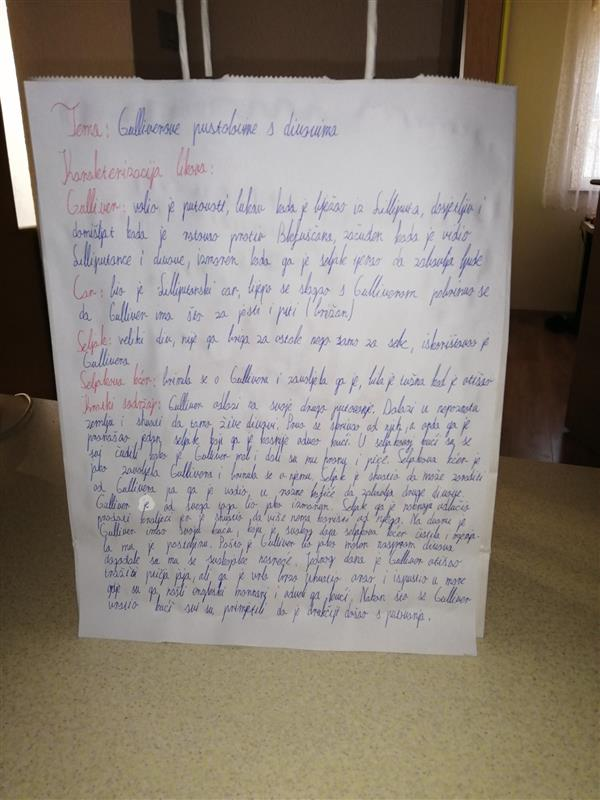 Tema: Gulliverove pustolovine s divovima
Karakterizacija likova:
Gulliver: volio je putovati, lukav kada je bježao iz Lilliputa, dosjetljiv i
domišljat kada je ratovao protiv Blefušćana, začuđen kada je vidio
Lilliputance i divove, izmoren kada ga je seljak tjerao da zabavlja ljude
Car: bio je Lilliputanski car, lijepo se slagao s Gulliverom pobrinuo se
da Gulliver ima što za jesti i piti (brižan)
Seljak: veliki div, nije ga briga za ostale nego samo za sebe, iskorištavao je
Gullivera
Seljakova kćer: brinula se o Gulliveru i zavoljela ga je, bila je tužna kad je otišao
Kratki sadržaj: Gulliver odlazi na svoje drugo putovanje. Dolazi u nepoznatu
zemlju i shvati da tamo žive divovi. Prvo se skrivao od njih, a onda ga je
pronašao jedan seljak koji ga je kasnije odveo kući. U seljakovoj kući su se
svi čudili kako je Gulliver mali i dali su mu hranu i piće. Seljakova kćer je
jako zavoljela Gullivera i brinula se o njemu. Seljak je shvatio da može zaraditi
od Gullivera pa ga je vodio u razne krčme da zabavlja druge divove.
Gulliver je od svega toga bio jako izmoren. Seljak ga je odlučio
prodati kraljici jer je shvatio da više nema koristi od njega. Na dvoru je
Gulliver imao svoju kuću, koju je svakog dana seljakova kćer čistila i
la mu je posteljinu. Pošto je Gulliver bio jako malen naspram divova
događale su mu se svakojake nesreće. Jednog dana je Gulliver otišao
tražiti ptičja jaja, ali ga je vrlo brzo uhvatio orao i ispustio u more
gdje su ga našli engleski mornari i odveli ga kući. Nakon što se Gulliver
vratio kući svi su primjetili da je drukčiji došao s putovanja.